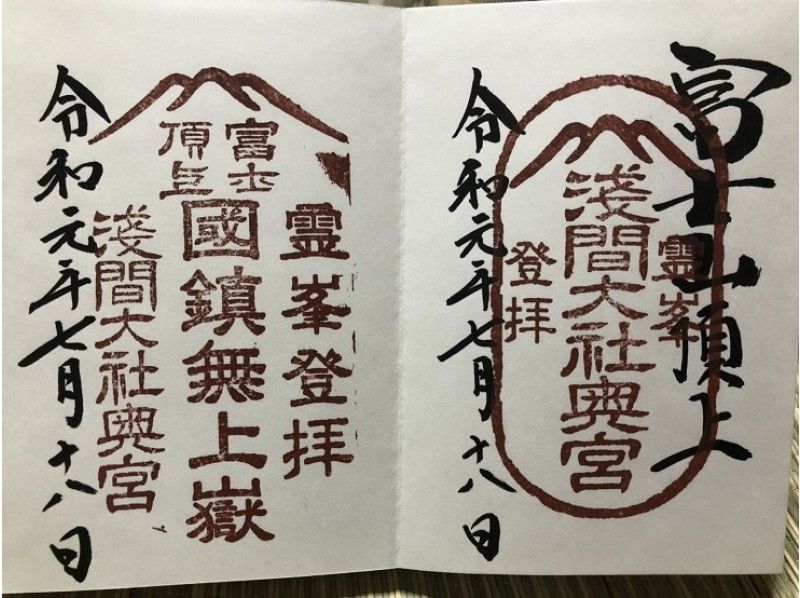 富士山頂上
霊峯
淺間大社奥宮
登拝
令和元年七月十八日
霊峯登拝
富士
頂上
國鎮無上嶽
淺間大社奥宮
令和元年七月十八日